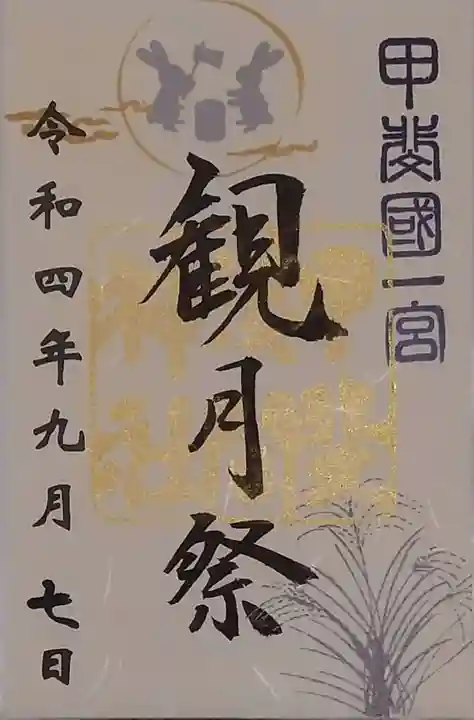 甲斐國一宮
観月祭
令和四年九月七日